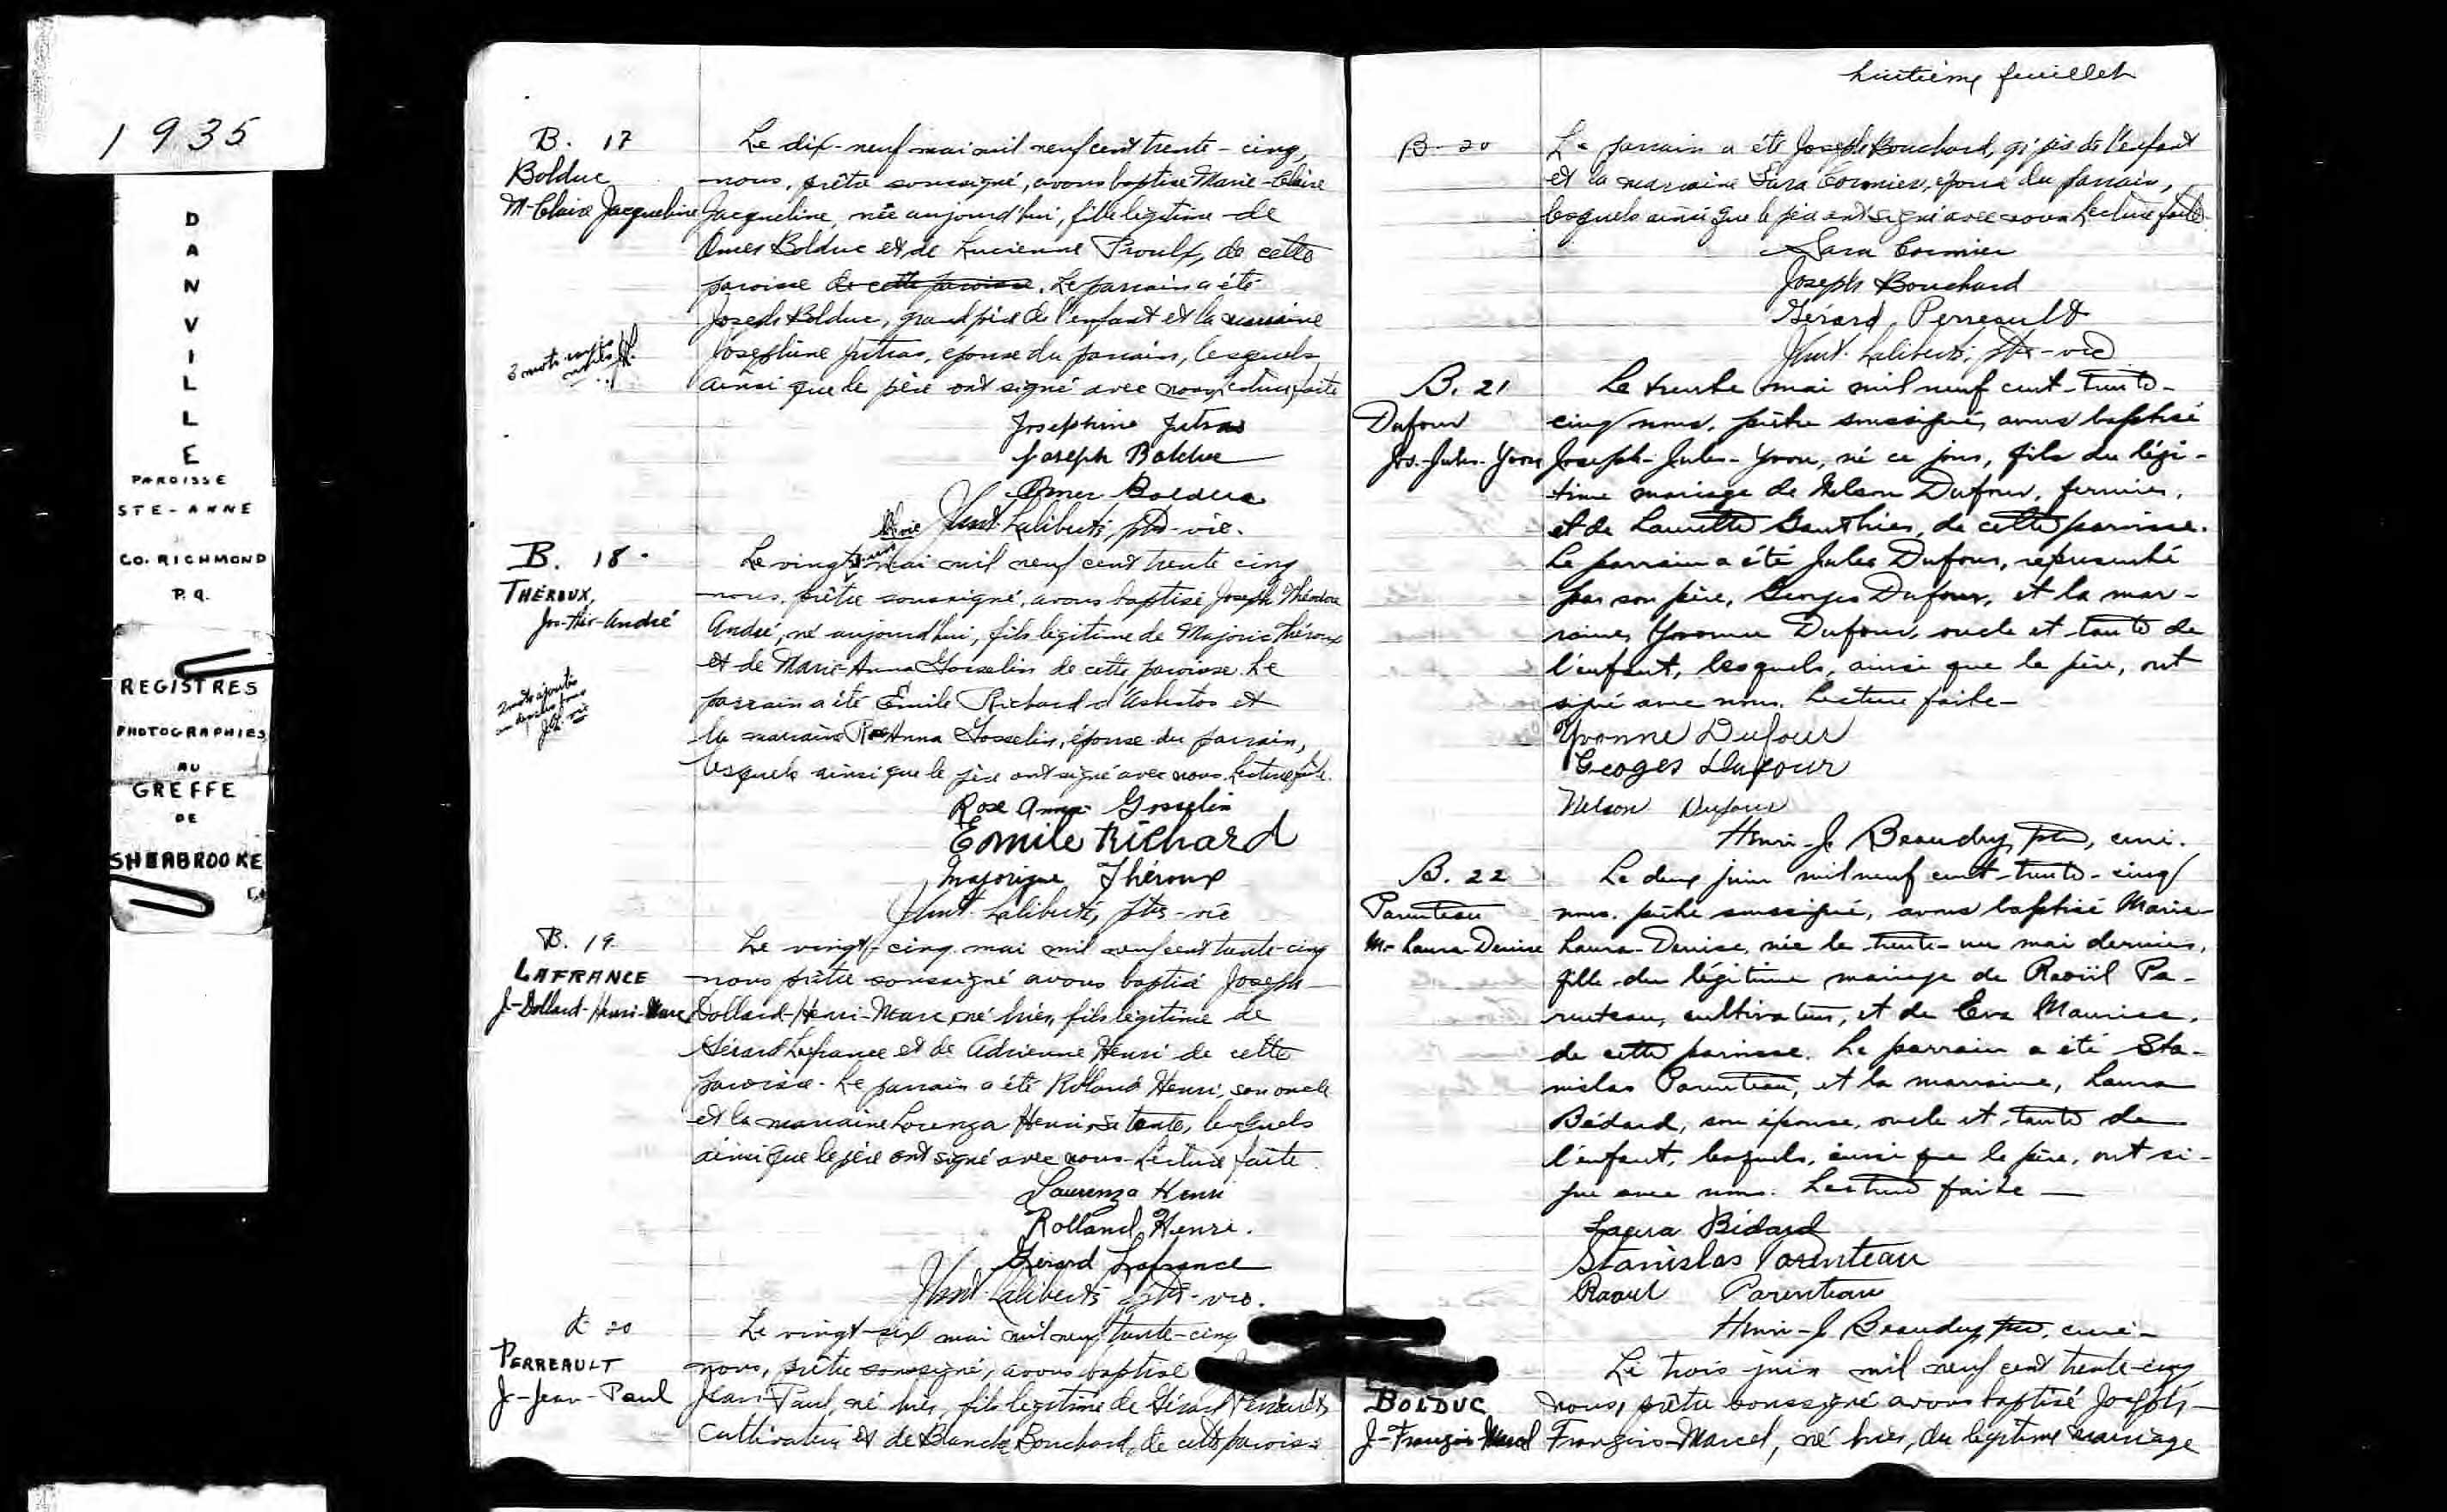 1935
D
A
N
V
I
L
L
E
PAROISSE
STE-ANNE
CO. RICHMOND
P.Q.
REGISTRES
PHOTOGRAPHIES
AU
GREFFE
DE
SHERBROOKE
B. 17
Bolduc
M-Claire Jacqueline
Le dix-neuf mai mil neuf cent trente-cinq,
nous, prêtre soussigné, avons baptisé Marie-Claire
Jacqueline, née aujourd'hui, fille légitime de
Omer Bolduc et de Lucienne Proulx, de cette
paroisse de cette paroisse. Le parrain a été
Joseph Bolduc, grand père de l'enfant et la marraine
Joséphine Jutras, épouse du parrain, lesquels
ainsi que le père ont signé avec nous. Lecture faite
3 mots
Josephine Jutras
Joseph Bolduc
Omer Bolduc
Laliberté, ptre-vic.
B. 18
THÉROUX,
Jos-Théo-André
Le vingt mai mil neuf cent trente cinq
nous, prêtre soussigné, avons baptisé Joseph Théodore
André, né aujourd'hui, fils légitime de Majoric Théroux
et de Marie-Anna Gosselin de cette paroisse. Le
parrain a été Emile Richard d'Asbestos et
la marraine Rose Anna Gosselin, épouse du parrain,
lesquels ainsi que le père ont signé avec nous. Lecture faite.
2 mots ajoutés
Rose Anna Gosselin
Emile Richard
Majorique Théroux
Laliberté, ptre-vic
B. 19
LAFRANCE
J-Dollard-Henri-Marc
Le vingt-cinq mai mil neuf cent trente-cinq
nous prêtre soussigné avons baptisé Joseph
Dollard-Henri-Marc, né hier, fils légitime de
Gérard Lafrance et de Adrienne Henri de cette
paroisse. Le parrain a été Rolland Henri, son oncle
et la marraine Lorenza Henri, sa tante, lesquels
ainsi que le père ont signé avec nous. Lecture faite.
Laurenza Henri
Rolland Henri.
Gérard Lafrance
Laliberté ptre-vic.
20
PERREAULT
J-Jean-Paul
Le vingt-six mai mil neuf trente-cinq
nous, prêtre soussigné, avons baptisé
Jean Paul, né hier, fils légitime de Gérard Perreault
cultivateur et de Blanche Bouchard, de cette paroisse
huitième feuillet
B-20
Le parrain a été Joseph Bouchard, de l'enfant
et la marraine Sara Cormier, épouse du parrain,
lesquels ainsi que le père ont signé avec nous. Lecture faite.
Sara Cormier
Joseph Bouchard
Gérard Perreault
Laliberté, ptre-vic
B. 21
Dufour
Jos.-Jules-Yvon
Le trente mai mil neuf cent-trente-
cinq nous, prêtre soussigné, avons baptisé
Joseph-Jules-Yvon, né ce jour, fils du légi-
time mariage de Nelson Dufour, fermier,
et de Laurette Gauthier, de cette paroisse.
Le parrain a été Jules Dufour, représenté
par son père, Georges Dufour, et la mar-
raine, Yvonne Dufour, oncle et tante de
l'enfant, lesquels, ainsi que le père, ont
signé avec nous. Lecture faite-
Yvonne Dufour
Geoges Dufour
Nelson Dufour
Henri-J. Beaudry, ptre, curé.
B. 22
Parenteau
M-Laura-Denise
Le deux juin mil neuf cent-trente-cinq
nous, prêtre soussigné, avons baptisé Marie-
Laura-Denise, née le trente-un mai dernier,
fille du légitime mariage de Raoül Pa-
renteau, cultivateur, et de Eva Maurice,
de cette paroisse. Le parrain a été Sta-
nislas Parenteau, et la marraine, Laura
Bédard, son épouse, oncle et tante de
l'enfant, lesquels, ainsi que le père, ont si-
gné avec nous. Lecture faite —
Laura Bédard
Stanislas Parenteau
Raoul Parenteau
Henri-J. Beaudry, ptre, curé-
BOLDUC
J-François-Marcel
Le trois juin mil neuf cent trente-cinq
nous, prêtre soussigné avons baptisé Joseph-
François-Marcel, né hier, du légitime mariage